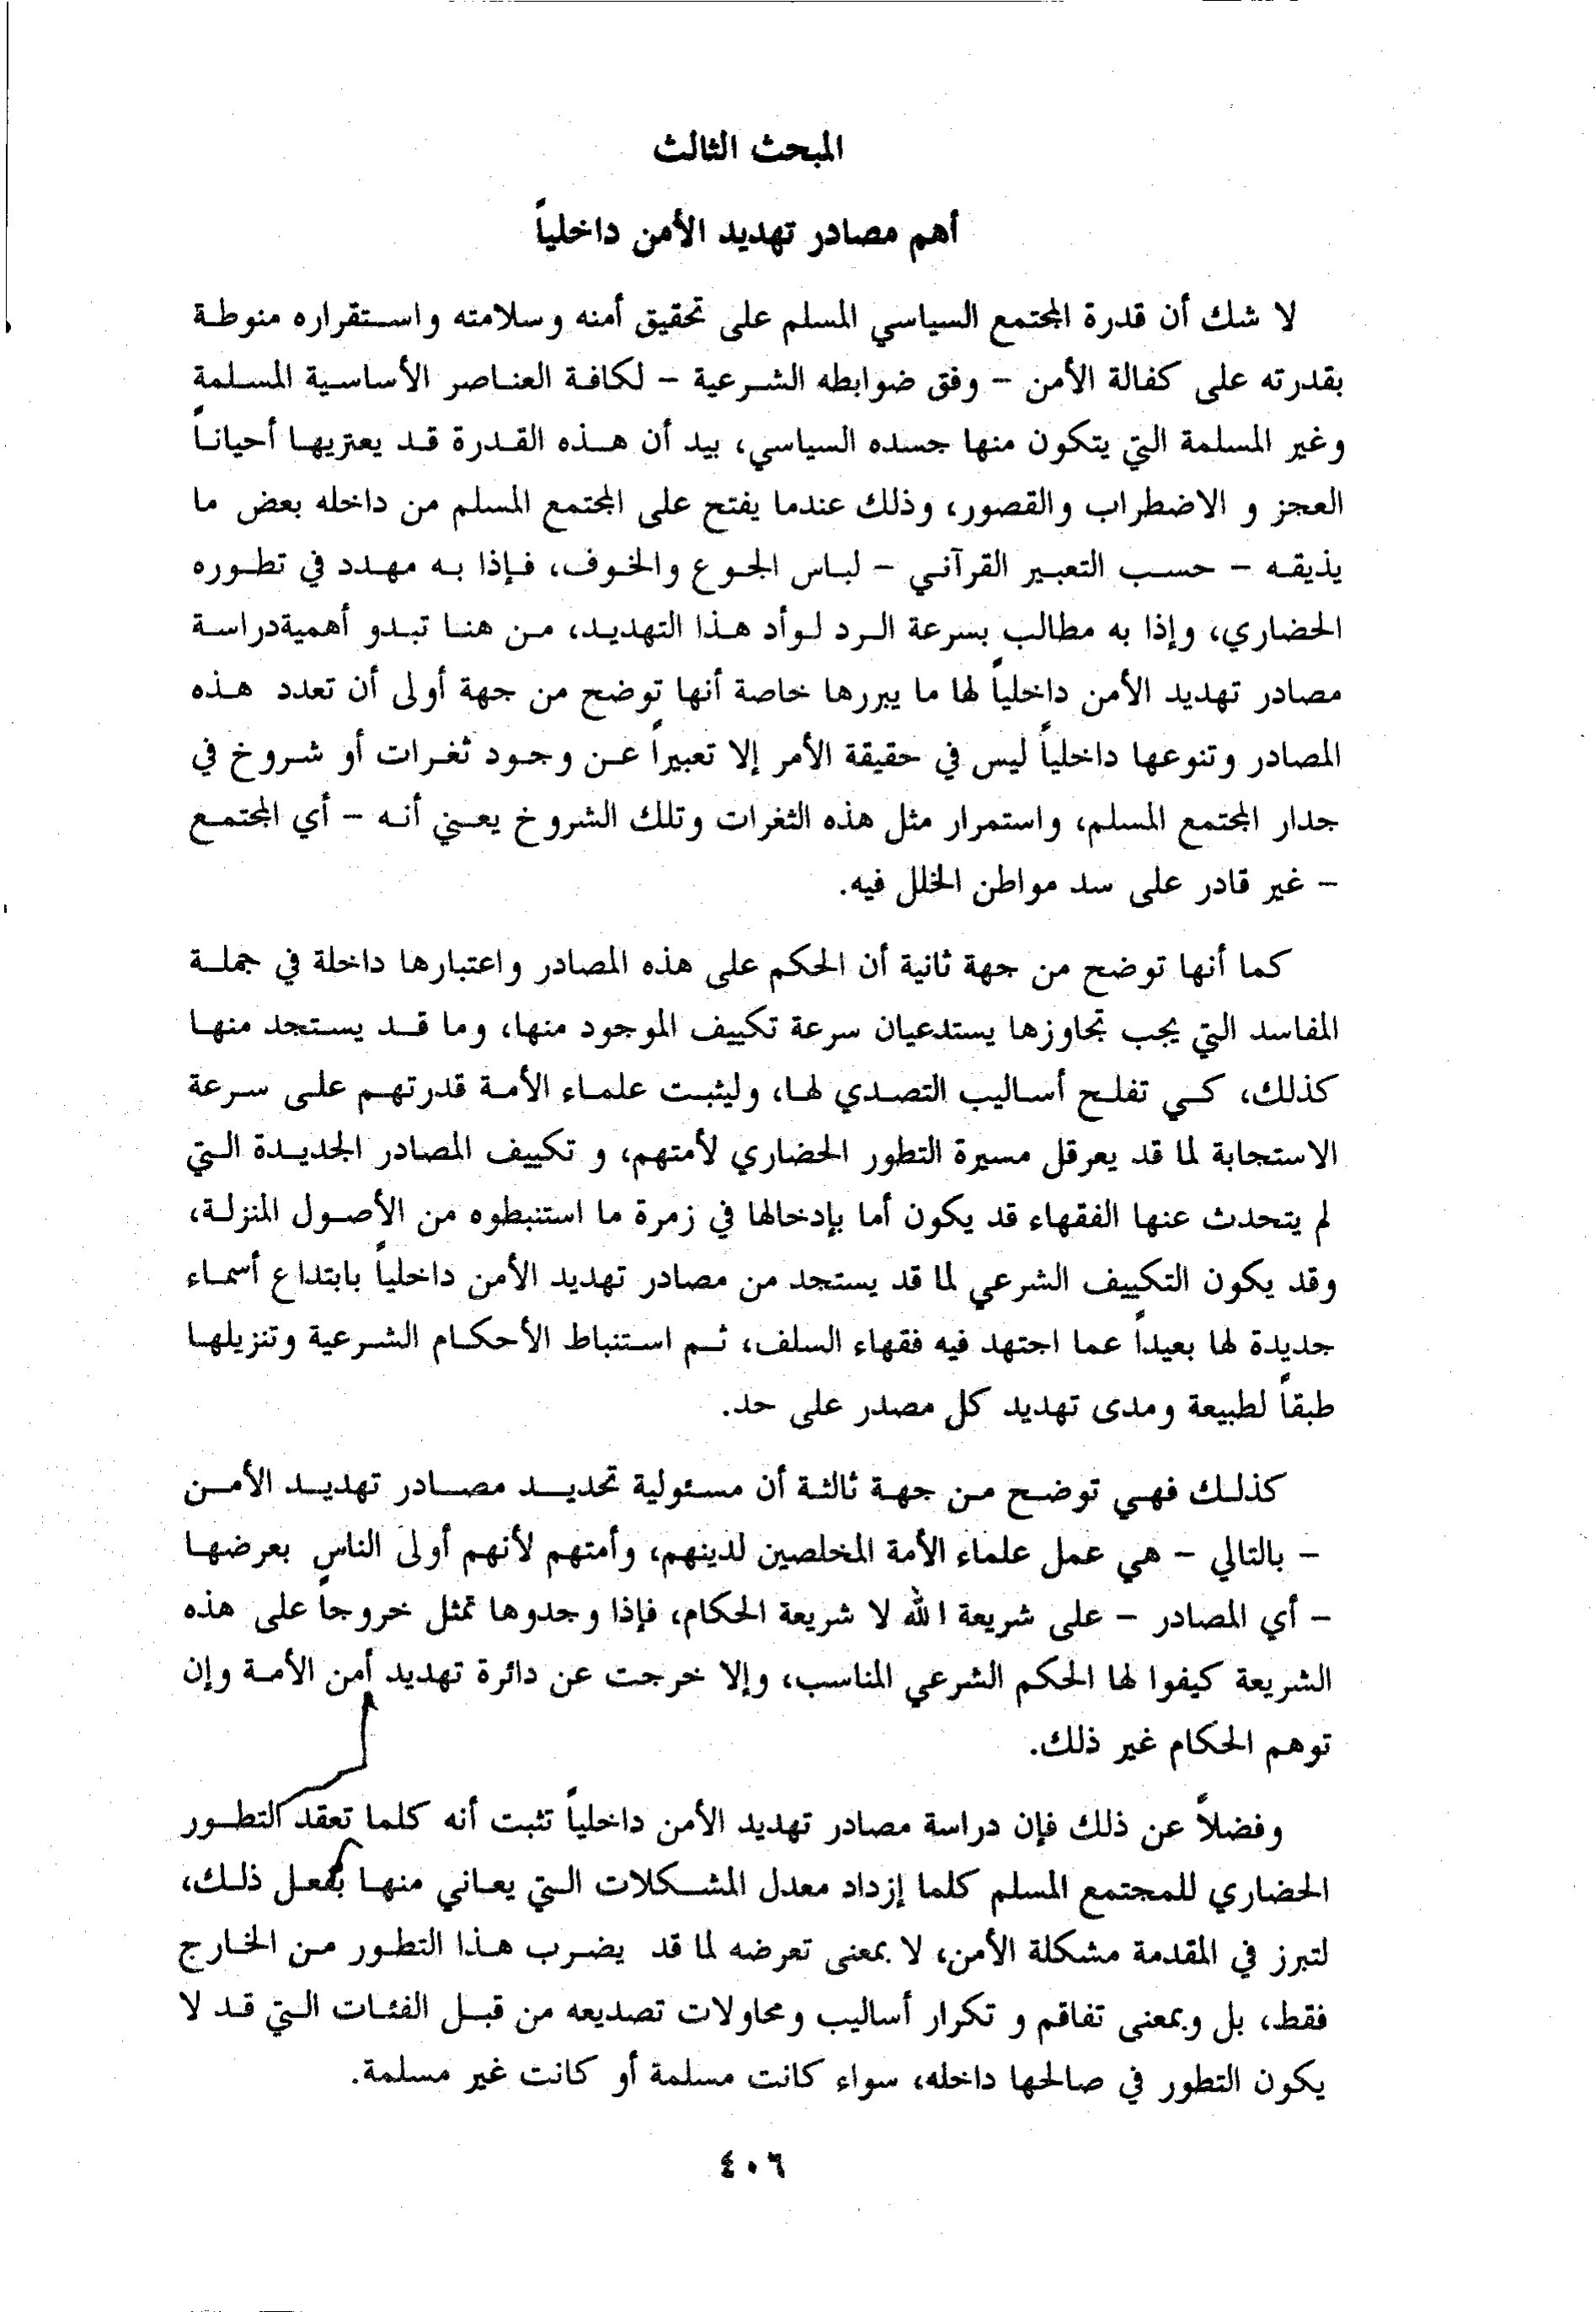 المبحث الثالث
أهم مصادر تهديد الأمن داخلياً
لا شك أن قدرة المجتمع السياسي المسلم على تحقيق أمنه وسلامته واستقراره منوطة
بقدرته على كفالة الأمن – وفق ضوابطه الشرعية – لكافة العناصر الأساسية المسلمة
وغير المسلمة التي يتكون منها جسده السياسي، بيد أن هذه القدرة قد يعتريها أحياناً
العجز و الاضطراب والقصور، وذلك عندما يفتح على المجتمع المسلم من داخله بعض ما
يذيقه – حسب التعبير القرآني – لباس الجوع والخوف، فإذا به مهدد في تطوره
الحضاري، وإذا به مطالب بسرعة الرد لوأد هذا التهديد، من هنا تبدو أهميةدراسة
مصادر تهديد الأمن داخلياً لها ما يبررها خاصة أنها توضح من جهة أولى أن تعدد هذه
المصادر وتنوعها داخلياً ليس في حقيقة الأمر إلا تعبيراً عن وجود ثغرات أو شروخ في
جدار المجتمع المسلم، واستمرار مثل هذه الثغرات وتلك الشروخ يعني أنه – أي المجتمع
– غير قادر على سد مواطن الخلل فيه.
كما أنها توضح من جهة ثانية أن الحكم على هذه المصادر واعتبارها داخلة في جملة
المفاسد التي يجب تجاوزها يستدعيان سرعة تكييف الموجود منها، وما قد يستجد منها
كذلك، كي تفلح أساليب التصدي لها، وليثبت علماء الأمة قدرتهم على سرعة
الاستجابة لما قد يعرقل مسيرة التطور الحضاري لأمتهم، و تكييف المصادر الجديدة التي
لم يتحدث عنها الفقهاء قد يكون أما بإدخالها في زمرة ما استنبطوه من الأصول المنزلة،
وقد يكون التكييف الشرعي لما قد يستجد من مصادر تهديد الأمن داخلياً بابتداع أسماء
جديدة لها بعيداً عما اجتهد فيه فقهاء السلف، ثم استنباط الأحكام الشرعية وتنزيلها
طبقاً لطبيعة ومدى تهديد كل مصدر على حد.
كذلك فهي توضح من جهة ثالثة أن مسئولية تحديد مصادر تهديد الأمن
– بالتالي – هي عمل علماء الأمة المخلصين لدينهم، وأمتهم لأنهم أولى الناس بعرضها
– أي المصادر – على شريعة الله لا شريعة الحكام، فإذا وجدوها تمثل خروجاً على هذه
الشريعة كيفوا لها الحكم الشرعي المناسب، وإلا خرجت عن دائرة تهديد أمن الأمة وإن
توهم الحكام غير ذلك.
وفضلاً عن ذلك فإن دراسة مصادر تهديد الأمن داخلياً تثبت أنه كلما تعقد التطور
الحضاري للمجتمع المسلم كلما إزداد معدل المشكلات التي يعاني منها بفعل ذلك،
لتبرز في المقدمة مشكلة الأمن، لا بمعنى تعرضه لما قد يضرب هذا التطور من الخارج
فقط، بل وبمعنى تفاقم و تكرار أساليب ومحاولات تصديعه من قبل الفئات التي قد لا
يكون التطور في صالحها داخله، سواء كانت مسلمة أو كانت غير مسلمة.
٤٠٦